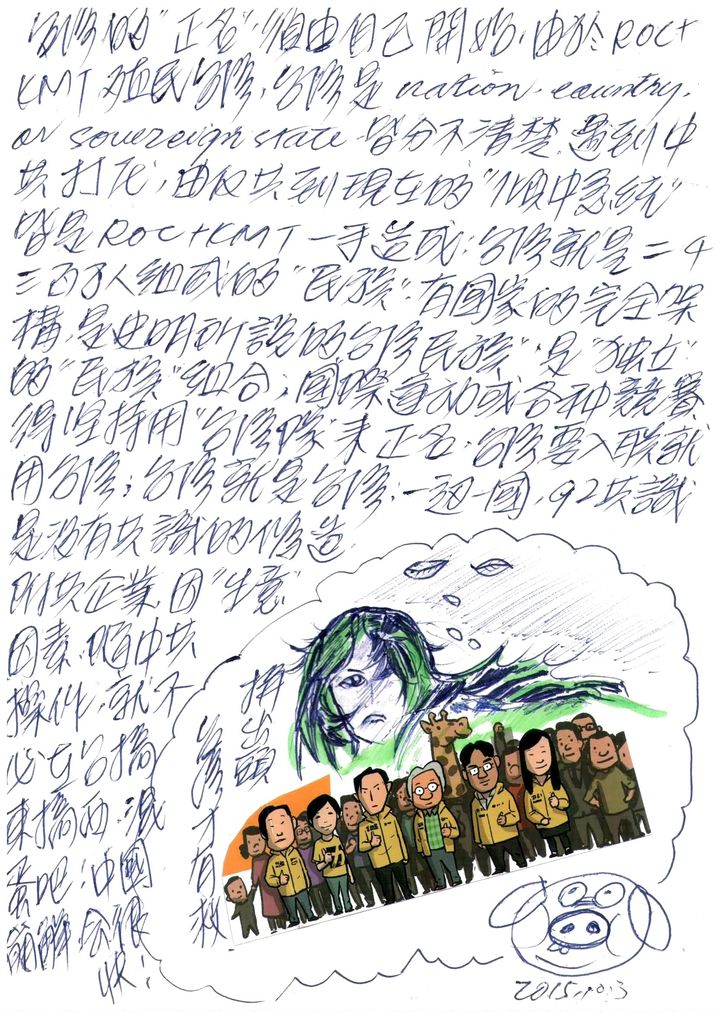 台湾的"正名"須由自己開始,由於ROC+
KMT殖民台湾,台湾是nation. country.
or sovereign state 皆分不清楚.遇到中
共打飞,由反共到現在的"傾中急統"
皆是ROC+KMT一手造成;台湾就是二千
三百万人組成的"民族",有國家的完全架
構,是史明所說的"台湾民族"是"独立"
的"民族"組合;國際運动或各种競賽
得坚持用"台湾隊"来正名,台湾要入联就
用台湾;台湾就是台湾,一边一國,92共識
是没有共識的偽造.
所共企業因"生意"
因素,
中共
操作,就不
必在台搞
東搞西,混
蛋吧!中國
崩解会很
快!
拼出頭
台湾才有救
2015.10.3